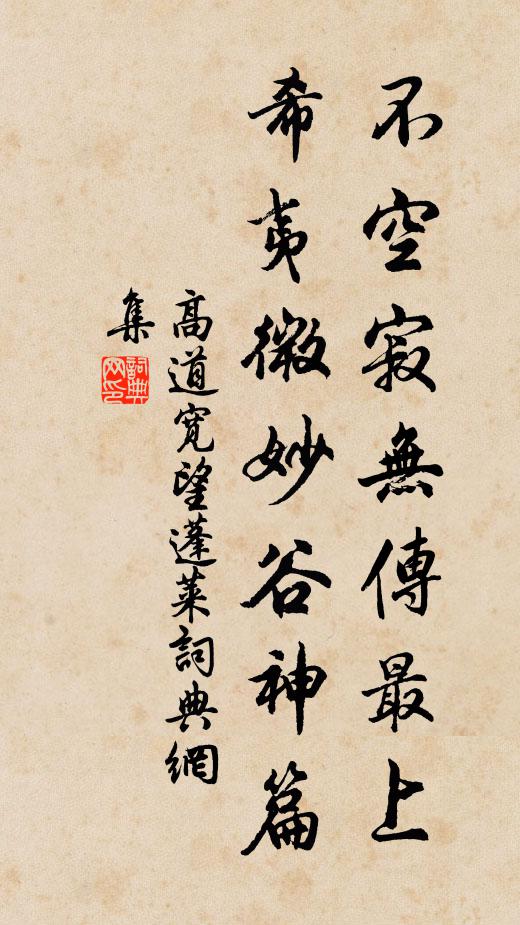 不空寂無傳最上
希夷微妙谷神篇
高道寬望蓬萊詞典網
集
詞典
网印